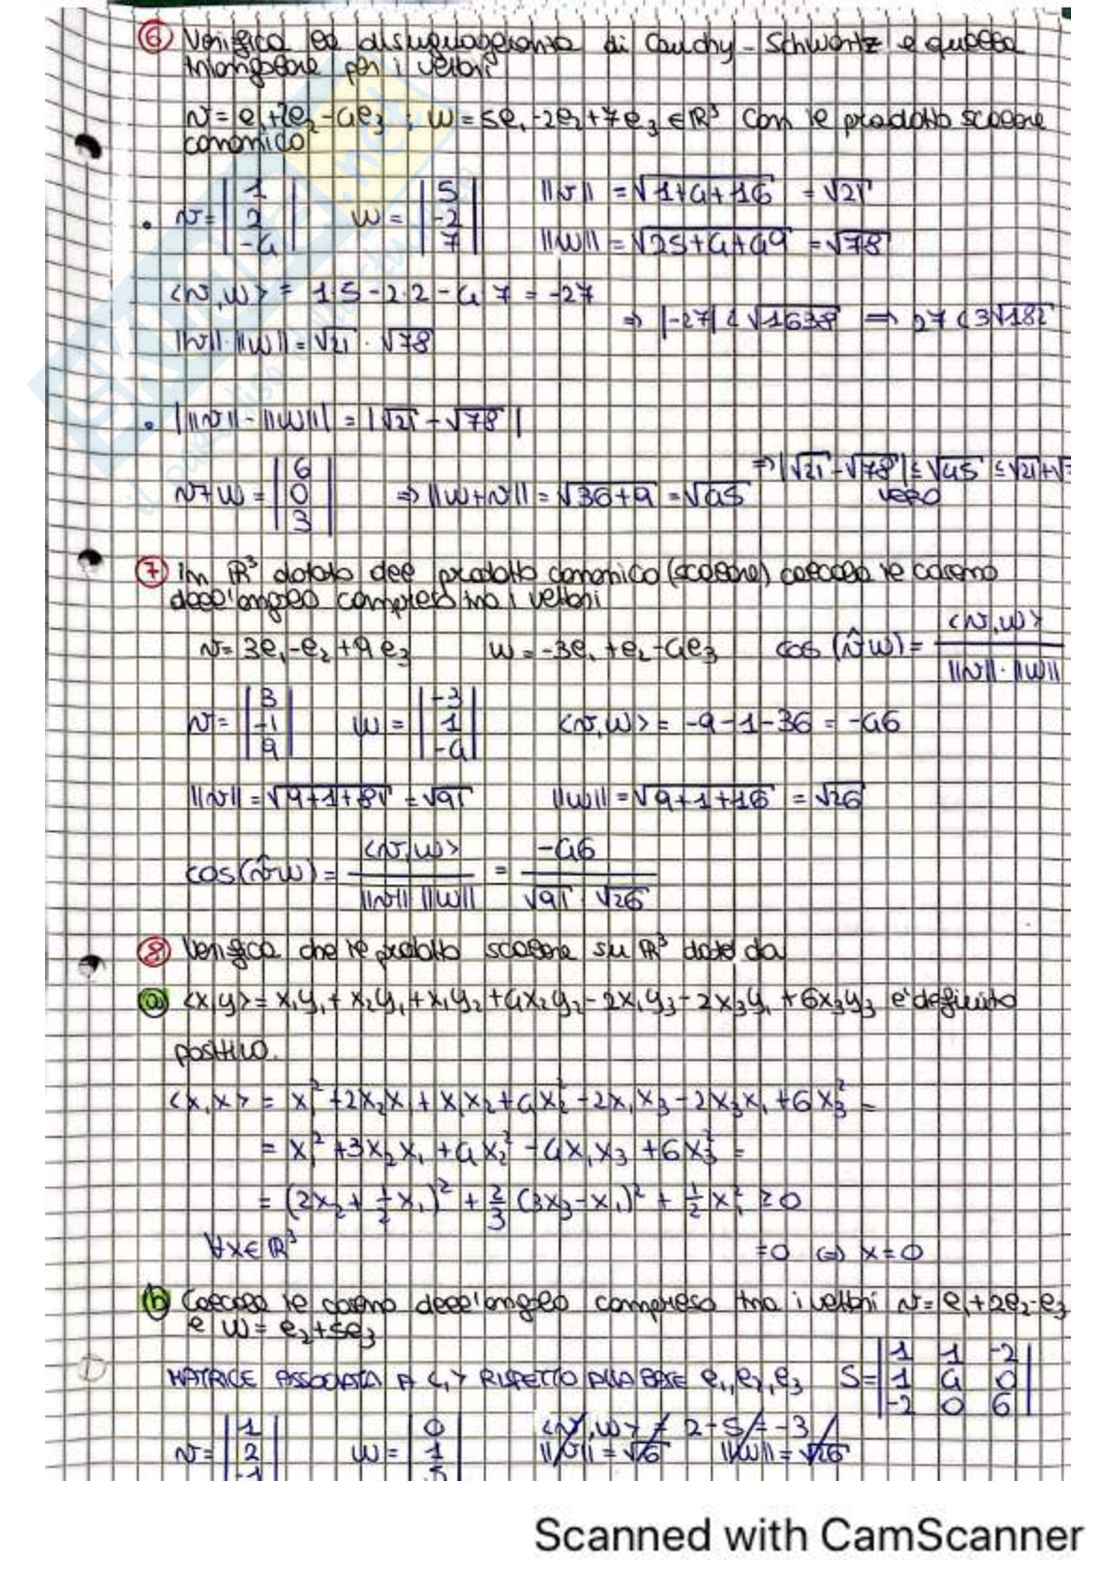 ⑥ Verifica la disuguaglianza di Cauchy-Schwartz e quella
triangolare per i vettori
v = e₁+2e₂-4e₃ ; w = 5e₁-2e₂+7e₃ ∈ ℝ³ con il prodotto scalare
canonico
• v = |1 2 -4| w = |5 -2 7| ||v|| = √1+4+16 = √21
||w|| = √25+4+49 = √78
<v,w> = 1·5-2·2-4·7 = -27
⇒ |-27| < √1638 ⇒ 27 < 3√182
||v||·||w|| = √21 · √78
• | ||v|| - ||w|| | = |√21 - √78|
⇒ |√21-√78| ≤ √45 ≤ √21+√7
v+w = |6 0 3| ⇒ ||w+v|| = √36+9 = √45 vero
⑦ In ℝ³ dotato del prodotto canonico (scalare) calcola il coseno
dell'angolo compreso tra i vettori
v = 3e₁-e₂+9e₃ w = -3e₁+e₂-4e₃ cos(v̂w) = <v,w> / ||v||·||w||
v = |3 -1 9| w = |-3 1 -4| <v,w> = -9-1-36 = -46
||v|| = √9+1+81 = √91 ||w|| = √9+1+16 = √26
cos(v̂w) = <v,w> / ||v|| ||w|| = -46 / √91 · √26
⑧ Verifica che il prodotto scalare su ℝ³ dato da
ⓐ <x,y> = x₁y₁+x₂y₁+x₁y₂+4x₂y₂-2x₁y₃-2x₃y₁+6x₃y₃ è definito
positivo.
<x,x> = x₁²+2x₂x₁+x₁x₂+4x₂²-2x₁x₃-2x₃x₁+6x₃² =
= x₁²+3x₂x₁+4x₂²-4x₁x₃+6x₃² =
= (2x₂+½x₁)² + ⅔(3x₃-x₁)² + ½x₁² ≥ 0
∀x∈ℝ³ =0 ⇔ x=0
ⓑ Calcola il coseno dell'angolo compreso tra i vettori v = e₁+2e₂-e₃
e w = e₂+5e₃
MATRICE ASSOCIATA A <,> RISPETTO ALLA BASE e₁,e₂,e₃ S = |1 1 -2 1 4 0 -2 0 6|
v = |1 2 -1| w = |0 1 5| <v,w> = 2-5 = -3
||v|| = √6 ||w|| = √26
Scanned with CamScanner